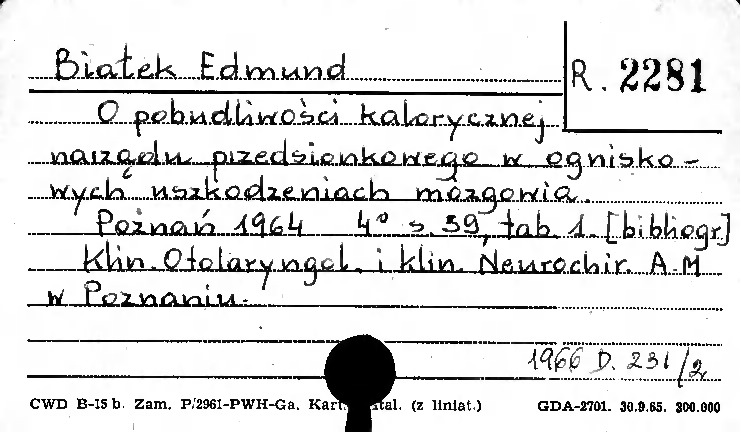 Białek Edmund
R. 2281
O pobudliwości kalorycznej
narządu przedsionkowego w ognisko-
wych uszkodzeniach mózgowia.
Poznań 1964 4° s. 39, tab. 1. [bibliogr]
Klin. Otolaryngol. i klin. Neurochir. A.M
w Poznaniu.
1966 D. 231/2
CWD B-15 b. Zam. P/2961-PWH-Ga. Kart. (z liniat.) GDA-2701. 30.9.65. 300.000